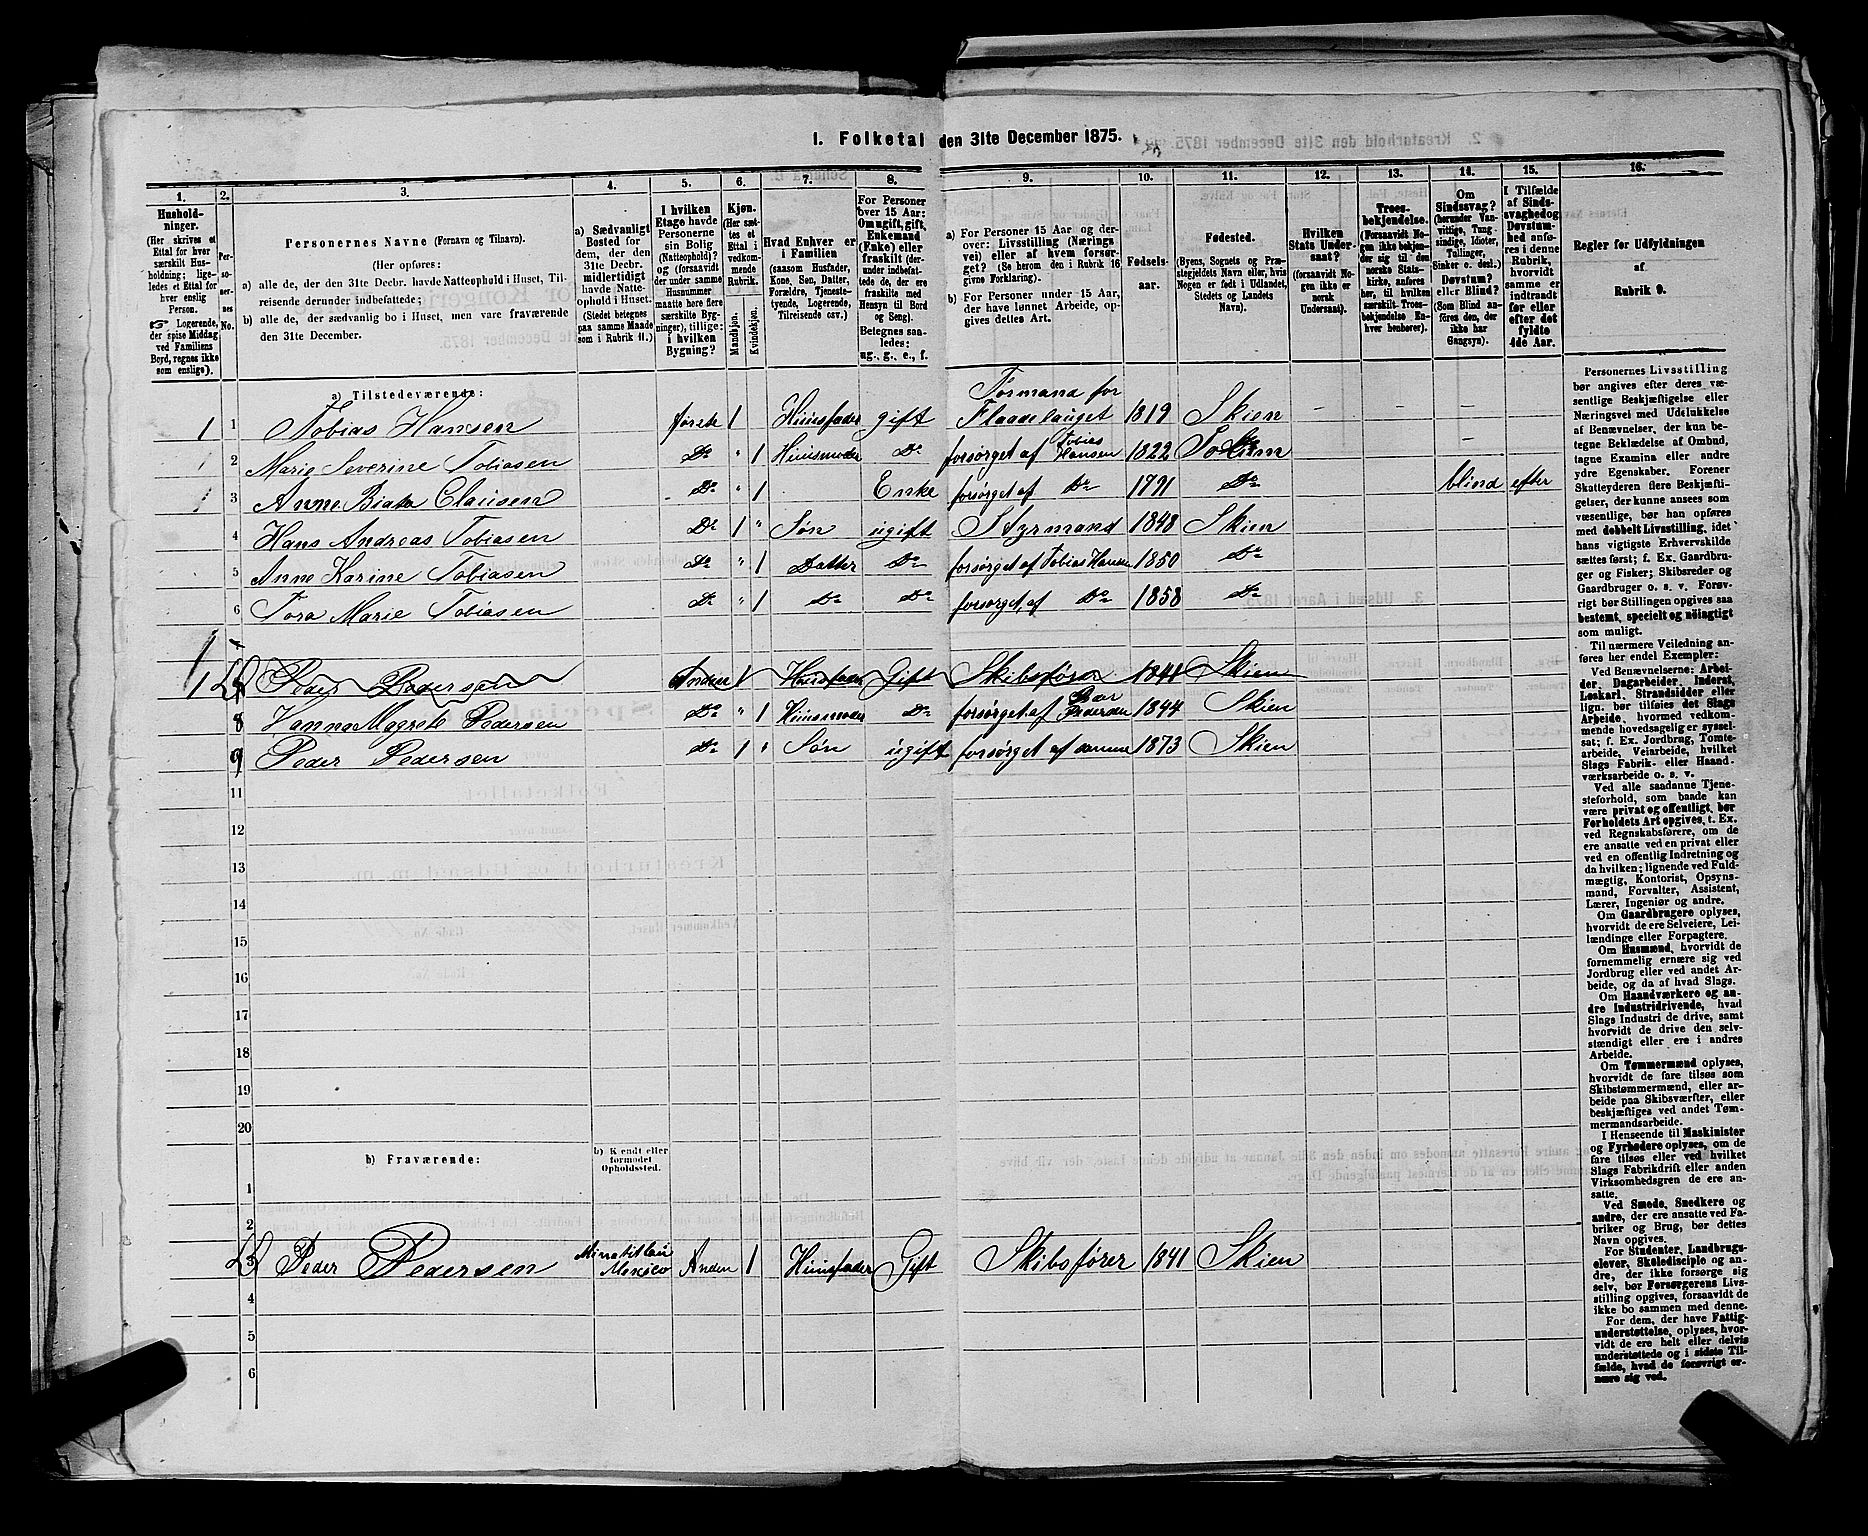 1. Folketal den 31te December 1875.
1. 2. 3. 4. 5. 6. 7. 8. 9. 10. 11. 12. 13. 14. 15. 16.
Husholdninger.
(Her skrives et Ettal for hver særskilt Husholdning; ligeledes et Ettal for hver enslig Person.
☞ Logerende, der spise Middag ved Familiens Bord, regnes ikke som enslige).
Personernes No.
Personernes Navne (Fornavn og Tilnavn).
(Her opføres:
a) alle de, der den 31te Decbr. havde Natteophold i Huset, Tilreisende derunder indbefattede;
b) alle de, der sædvanlig bo i Huset, men vare fraværende den 31te December.
a) Sædvanligt Bosted for dem, der den 31te Decbr. midlertidigt havde Natteophold i Huset. (Stedet betegnes paa samme Maade som i Rubrik 11.)
I hvilken Etage havde Personerne sin Bolig (Natteophold)? og (forsaavidt der under samme Husnummer maatte høre flere særskilte Bygninger), tillige: i hvilken Bygning?
Kjøn. (Her sættes et Ettal i vedkommende Rubrik.
Mandkjøn. Kvindekjøn.
Hvad Enhver er i Familien (saasom Husfader, Kone, Søn, Datter, Forældre, Tjenestetyende, Logerende, Tilreisende osv.)
For Personer over 15 Aar: Om ugift, gift, Enkemand (Enke) eller fraskilt (derunder indbefattede de, der ere fraskilte med Hensyn til Bord og Seng).
Betegnes saaledes: ug., g., e., f.
a) For Personer 15 Aar og derover: Livsstilling (Næringsvei) eller af hvem forsørget? (Se herom den i Rubrik 16 givne Forklaring).
b) For Personer under 15 Aar, der have lønnet Arbeide, opgives dettes Art.
Fødselsaar.
Fødested.
(Byens, Sognets og Præstegjeldets Navn eller, hvis Nogen er født i Udlandet, Stedets og Landets Navn).
Hvilken Stats Undersaat? (forsaavidt Nogen ikke er norsk Undersaat).
Troesbekjendelse. (Forsaavidt Nogen ikke bekjender sig til den norske Statskirke, anføres her, til hvilken særskilt. Troesbekjendelse Enhver henhører).
Om Sindssvag? (herunder Vanvittige, Tungsindige, Idioter, Tullinger, Sinker o. desl.) Døvstum? eller Blind? (Som Blind anføres den, der ikke har Gangsyn).
I Tilfælde af Sindssvaghed og Døvstumhed anføres i denne Rubrik, hvorvidt samme er indtraadt før eller efter det fyldte 4de Aar.
Regler for Udfyldningen af Rubrik 9.
a) Tilstedeværende:
1 1 Tobias Hansen første 1 Huusfader gift Formand for Flaadelauget 1819 Skien
2 Marie Severine Tobiasen Do " 1 Huusmoder Do forsørget af Tobias Hansen 1822
3 Anne Clausen Do " 1 Enke forsørget af Do 1791 Do blind efter
4 Hans Andreas Tobiasen Do 1 " Søn ugift Styrmand 1848 Skien
5 Anne Karine Tobiasen Do " 1 Datter Do forsørget af Tobias Hansen 1850 Do
6 Tora Marie Tobiasen Do " 1 Do Do forsørget af Do 1858 Do
1 Peder Pedersen Anden 1 Huusfader Gift Skibsfører 1841 Skien
8 Hanna Magrete Pedersen Do " 1 Huusmoder Do forsørget af Peder Pedersen 1844 Skien
9 Peder Pedersen Do 1 " Søn ugift forsørget af samme 1873 Skien
11
12
13
14
15
16
17
18
19
20
b) Fraværende:
b) Kjendt eller formodet Opholdssted.
1
2
3 Peder Pedersen Minatitlan Mexico Anden 1 Huusfader Gift Skibsfører 1841 Skien
4
5
6
Personernes Livsstilling
bør angives efter deres væ-
sentlige Beskjæftigelse eller
Næringsvei med Udelukkelse
af Benævnelser, der kun be-
tegne Beklædelse af Ombud,
tagne Examina eller andre
ydre Egenskaber. Forener
Skatteyderen flere Beskjæfti-
gelser, der kunne ansees som
væsentlige, bør han opføres
med dobbelt Livsstilling, idet
hans vigtigste Erhvervskilde
sættes først; f. Ex. Gaardbru-
ger og Fisker; Skibsreder og
Gaardbruger o. s. v. Forøv-
rigt bør Stillingen opgives saa
bestemt, specielt og nøiagtigt
som muligt.
Til nærmere Veiledning an-
føres her endel Exempler:
Ved Benævnelserne: Arbei-
der, Dagarbeider, Inderst,
Løskarl, Strandsidder eller
lign. bør tilføies det Slags
Arbeide, hvormed vedkom-
mende hovedsagelig er syssel-
sat; f. Ex. Jordbrug, Tomte-
arbeide, Veiarbeide, hvilket
Slags Fabrik- eller Haand-
værksarbeide o. s. v.
Ved alle saadanne Tjene-
steforhold, som baade kan
være privat og offentligt, bør
Forholdets Art opgives, t. Ex.
ved Regnskabsførere, om de
ere ansatte ved en privat eller
ved en offentlig Indretning og
da hvilken; lignende ved Fuld-
mægtig, Kontorist, Opsyns-
mand, Forvalter, Assistent,
Lærer, Ingeniør og andre.
Om Gaardbrugere oplyses,
hvorvidt de ere Selveiere, Lei-
lændinge eller Forpagtere.
Om Husmænd, hvorvidt de
fornemmelig ernære sig ved
Jordbrug eller ved andet Ar-
beide, og da af hvad Slags.
Om Haandværkere og an-
dre Industridrivende, hvad
Slags Industri de drive, samt
hvorvidt de drive den selv-
stændigt eller ere i andres
Arbeide.
Om Tømmermænd oplyses,
hvorvidt de fare tilsøs som
Skibstømmermænd, eller ar-
beide paa Skibsværfter, eller
beskjæftiges ved andet Tøm-
mermandsarbeide.
I Henseende til Maskinister
og Fyrbødere oplyses, om de
fare tilsøs eller ved hvilket
Slags Fabrikdrift eller anden
Virksomhedsgren de ere an-
satte.
Ved Smede, Snedkere og
andre, der ere ansatte ved Fa-
briker og Brug, bør dettes
Navn opgives.
For Studenter, Landbrugs-
elever, Skoledisciple og an-
dre, der ikke forsørge sig
selv, bør Forsørgerens Livs-
stilling opgives, forsaavidt de
ikke bo sammen med denne.
For dem, der have Fattig-
understøttelse, oplyses, hvor-
vidt de ere helt eller delvis
understøttede og i sidste Til-
fælde, hvad de forøvrigt er-
nære sig ved.